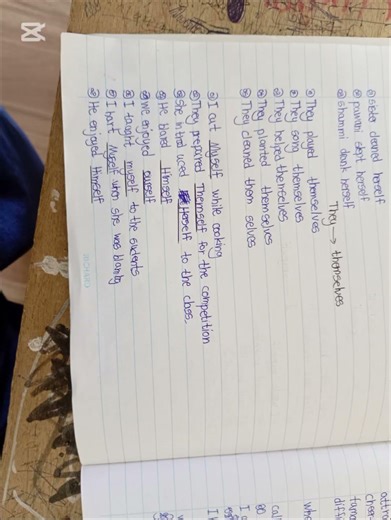 sister cleaned herself
pawani slept herself
shammi drank herself
They → themselves
They played themselves
They song themselves
They helped themselves
They planted themselves
They cleaned them selves
I cut Myself while cooking
They prepared Themself for the competition
She introduced Herself to the class.
He bland Himself
We enjoyed ourself
I taught myself to the students
I hart Myself when she was blaming
He enjoyed Himself